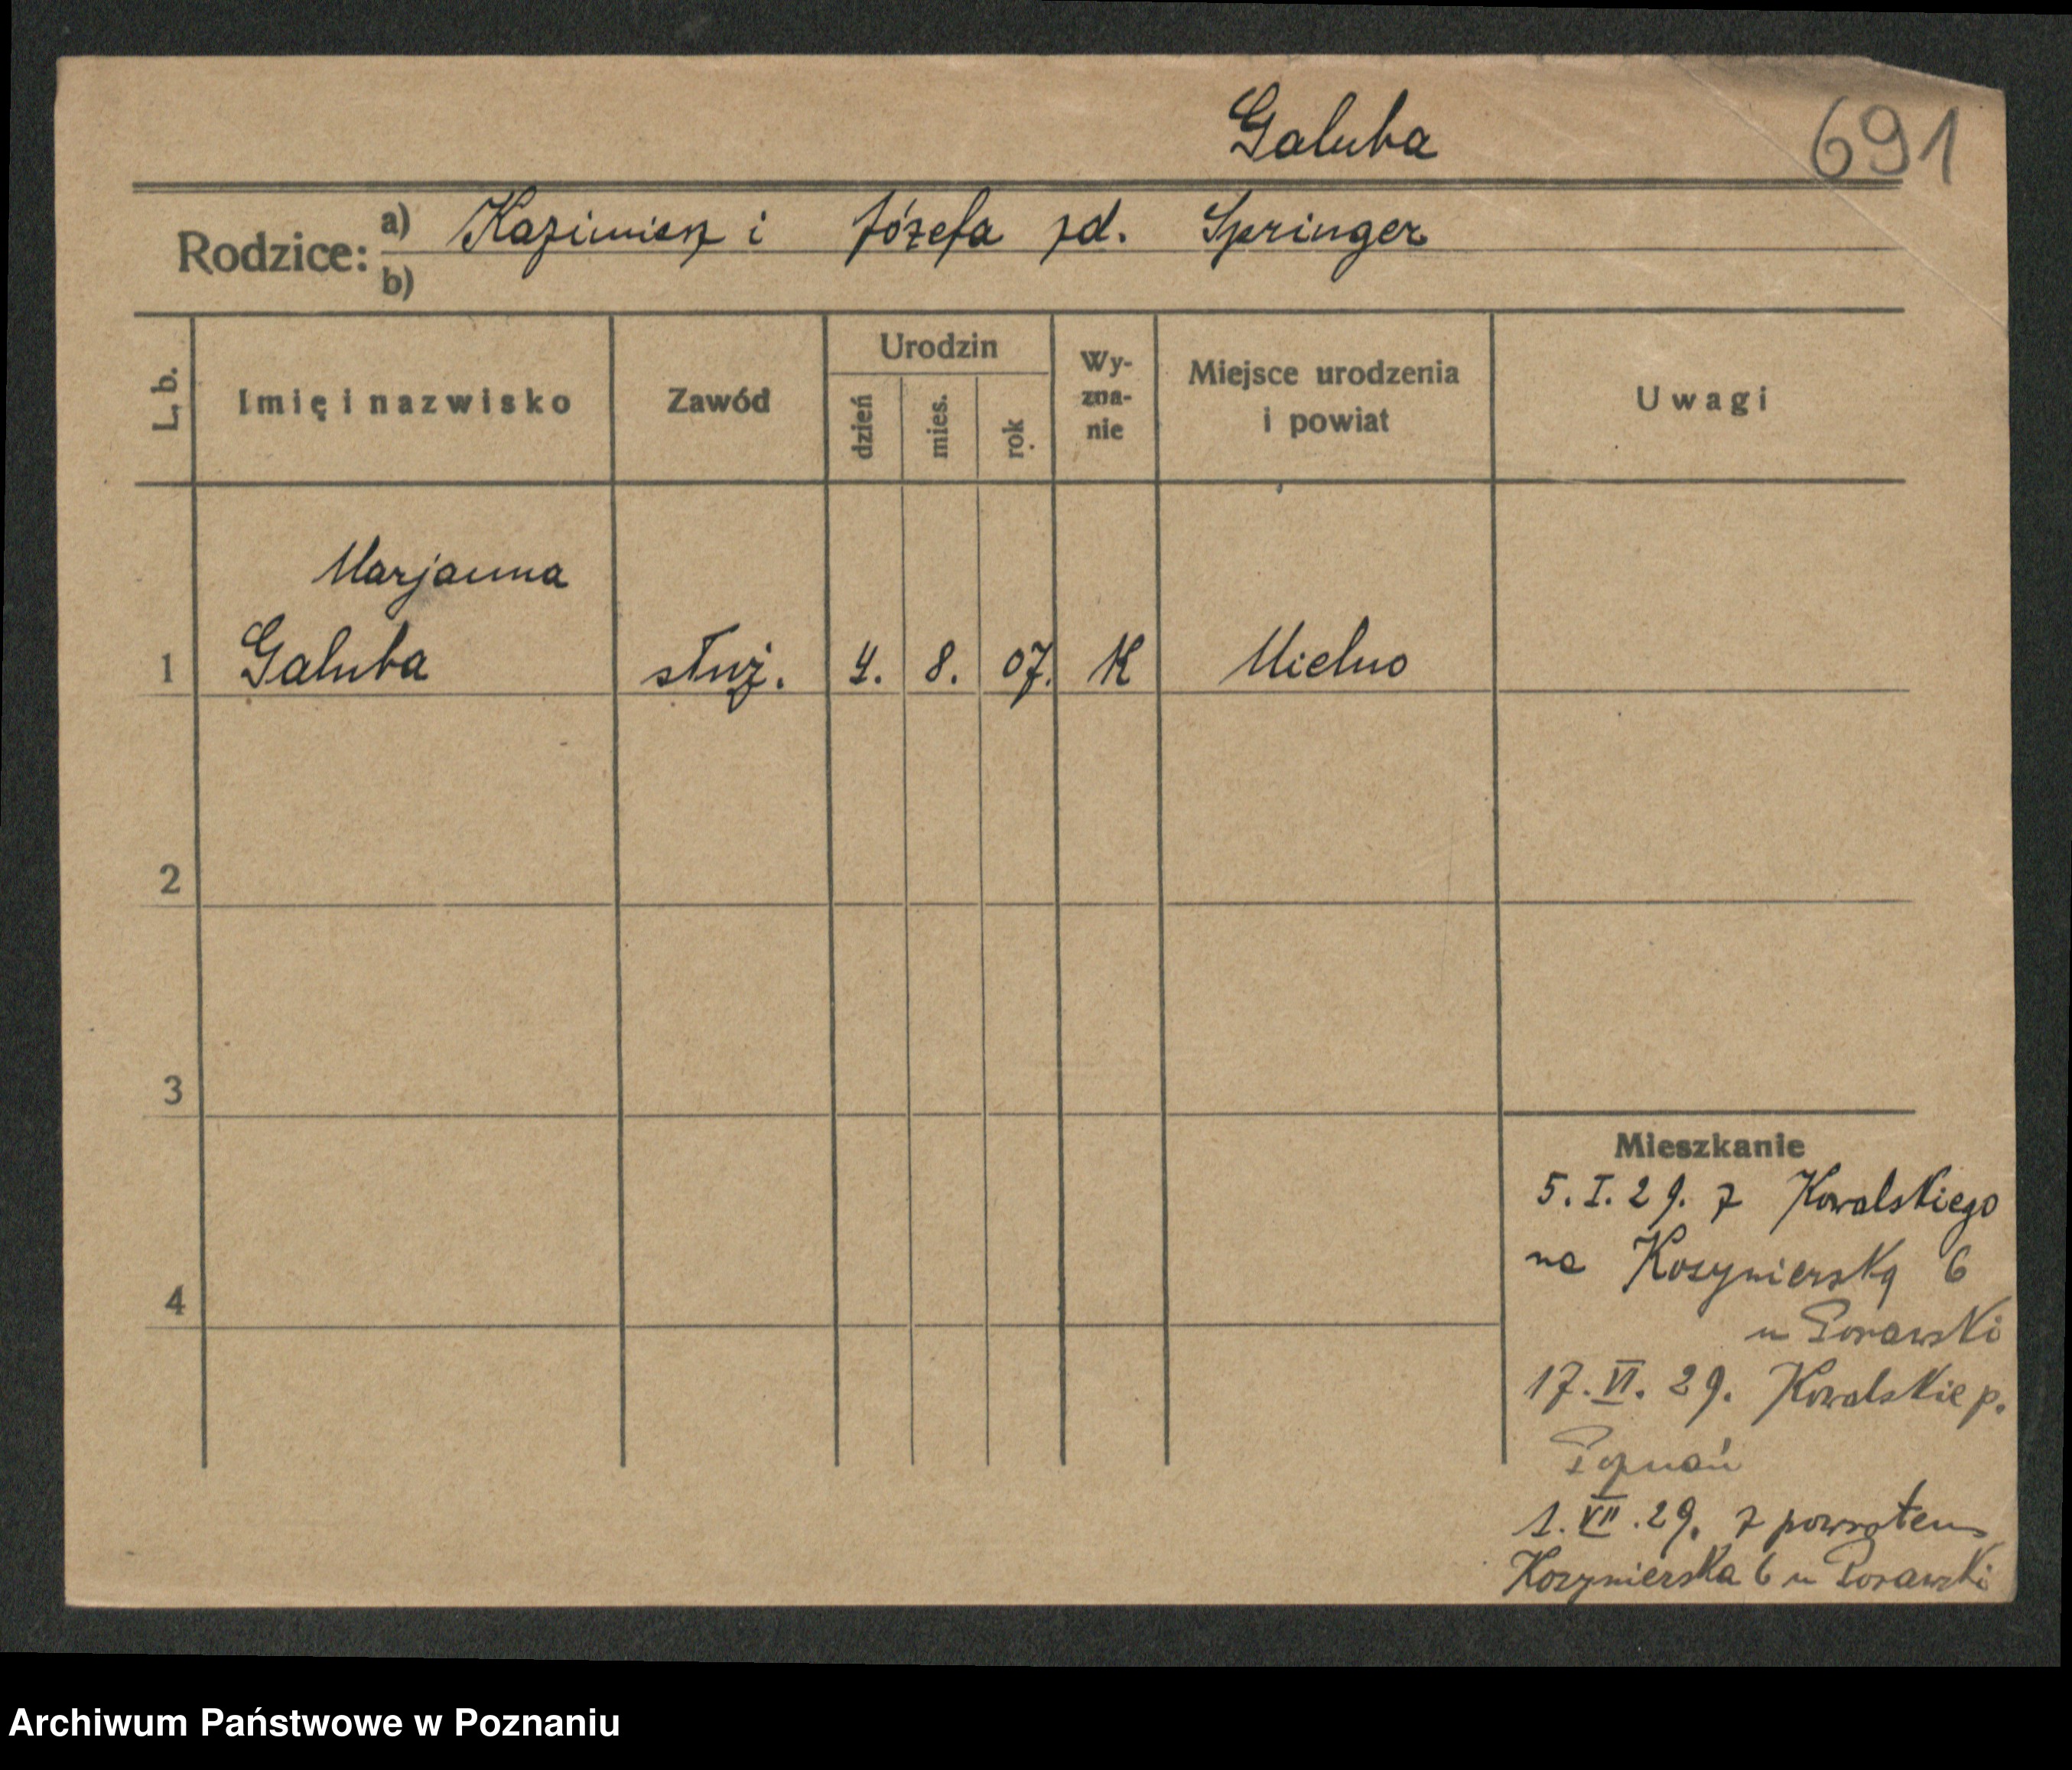 Galuba
691
Rodzice: a) Kazimierz i Józefa zd. Springer
b)
L. b.
Imię i nazwisko
Zawód
Urodzin
dzień
mies.
rok
Wy-
zna-
nie
Miejsce urodzenia
i powiat
Uwagi
Marjanna
1 Galuba służ. 4. 8. 07. K Mielno
2
3
4
Mieszkanie
5. I. 29. z Kowalskiego
na Kosynierską 6
u
17. VI. 29. Kowalskie p.
Poznań
1. VII. 29. z powrotem
Kosynierska 6 u
Archiwum Państwowe w Poznaniu